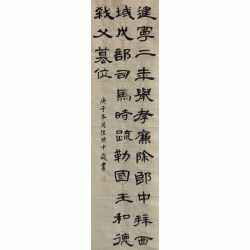 建寧二年舉孝廉除郎中拜西
域戊部司馬時疏勒國王和德
弒父篡位
庚子冬月十歲書